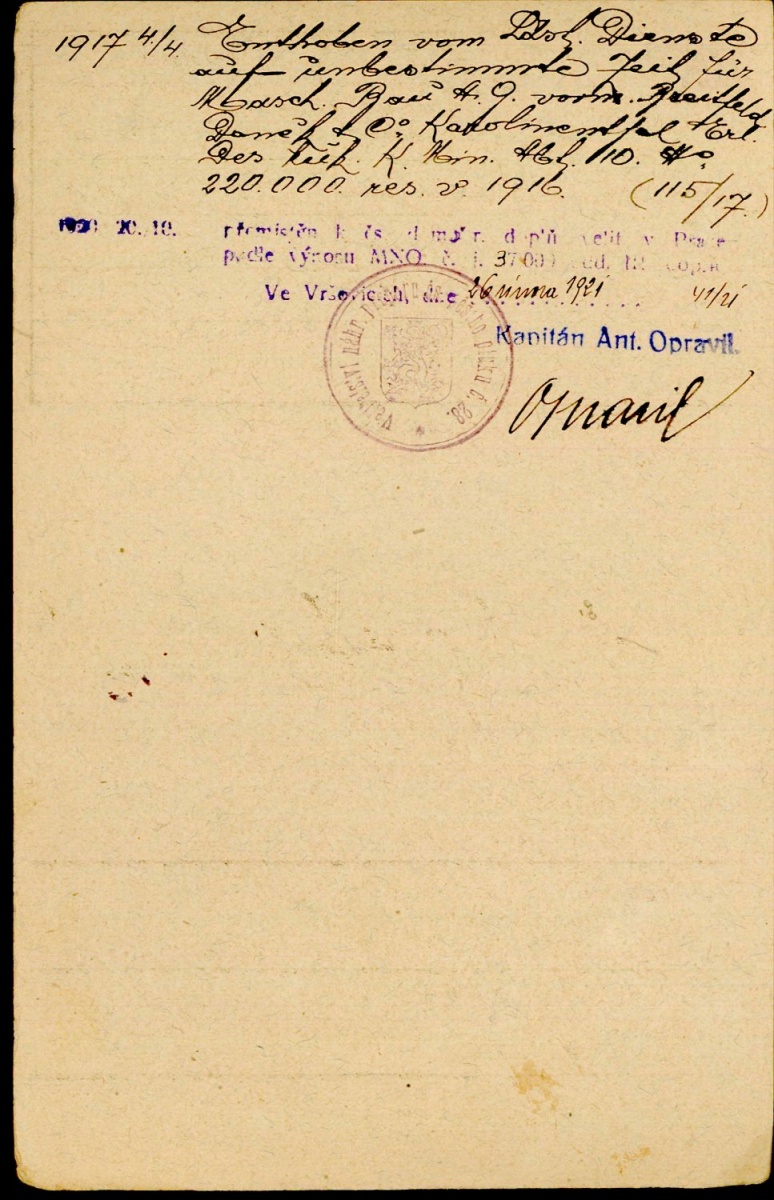 1917 4/4 Enthoben vom Ldst. Dienste
auf unbestimmte Zeit für
Masch. Bau A. G. vorm. Breitfeld
Daněk & Co Karolinenthal Erl.
des k. Min. Abt. 10. No
220.000. res. v. 1916. (115/17.)
1920 10. 10. přemístěn k čs. doplň. velit. v Praze
podle výnosu MNO. č. j. 37.000
Ve Vršovicích, dne 26 února 1921 41/21
Kapitán Ant. Opravil.
Velitelství náhr. pluku č. 28.
Opravil